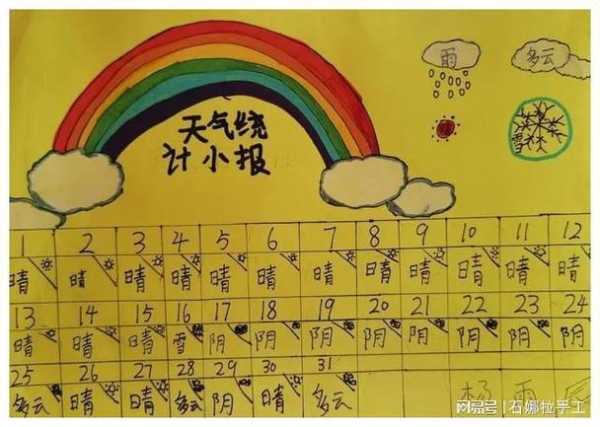 雨 多云
天气绕
计小报
1 2 3 4 5 6 7 8 9 10 11 12
晴 晴 晴 晴 晴 晴 晴 晴 晴 晴 晴 晴
13 14 15 16 17 18 19 20 21 22 23 24
晴 晴 晴 雪 阴 阴 阴 阴 阴 阴 阴 阴
25 26 27 28 29 30 31
多云 晴 晴 多云 阴 晴 多云
杨 雨
网易号 | 石娜拉手工